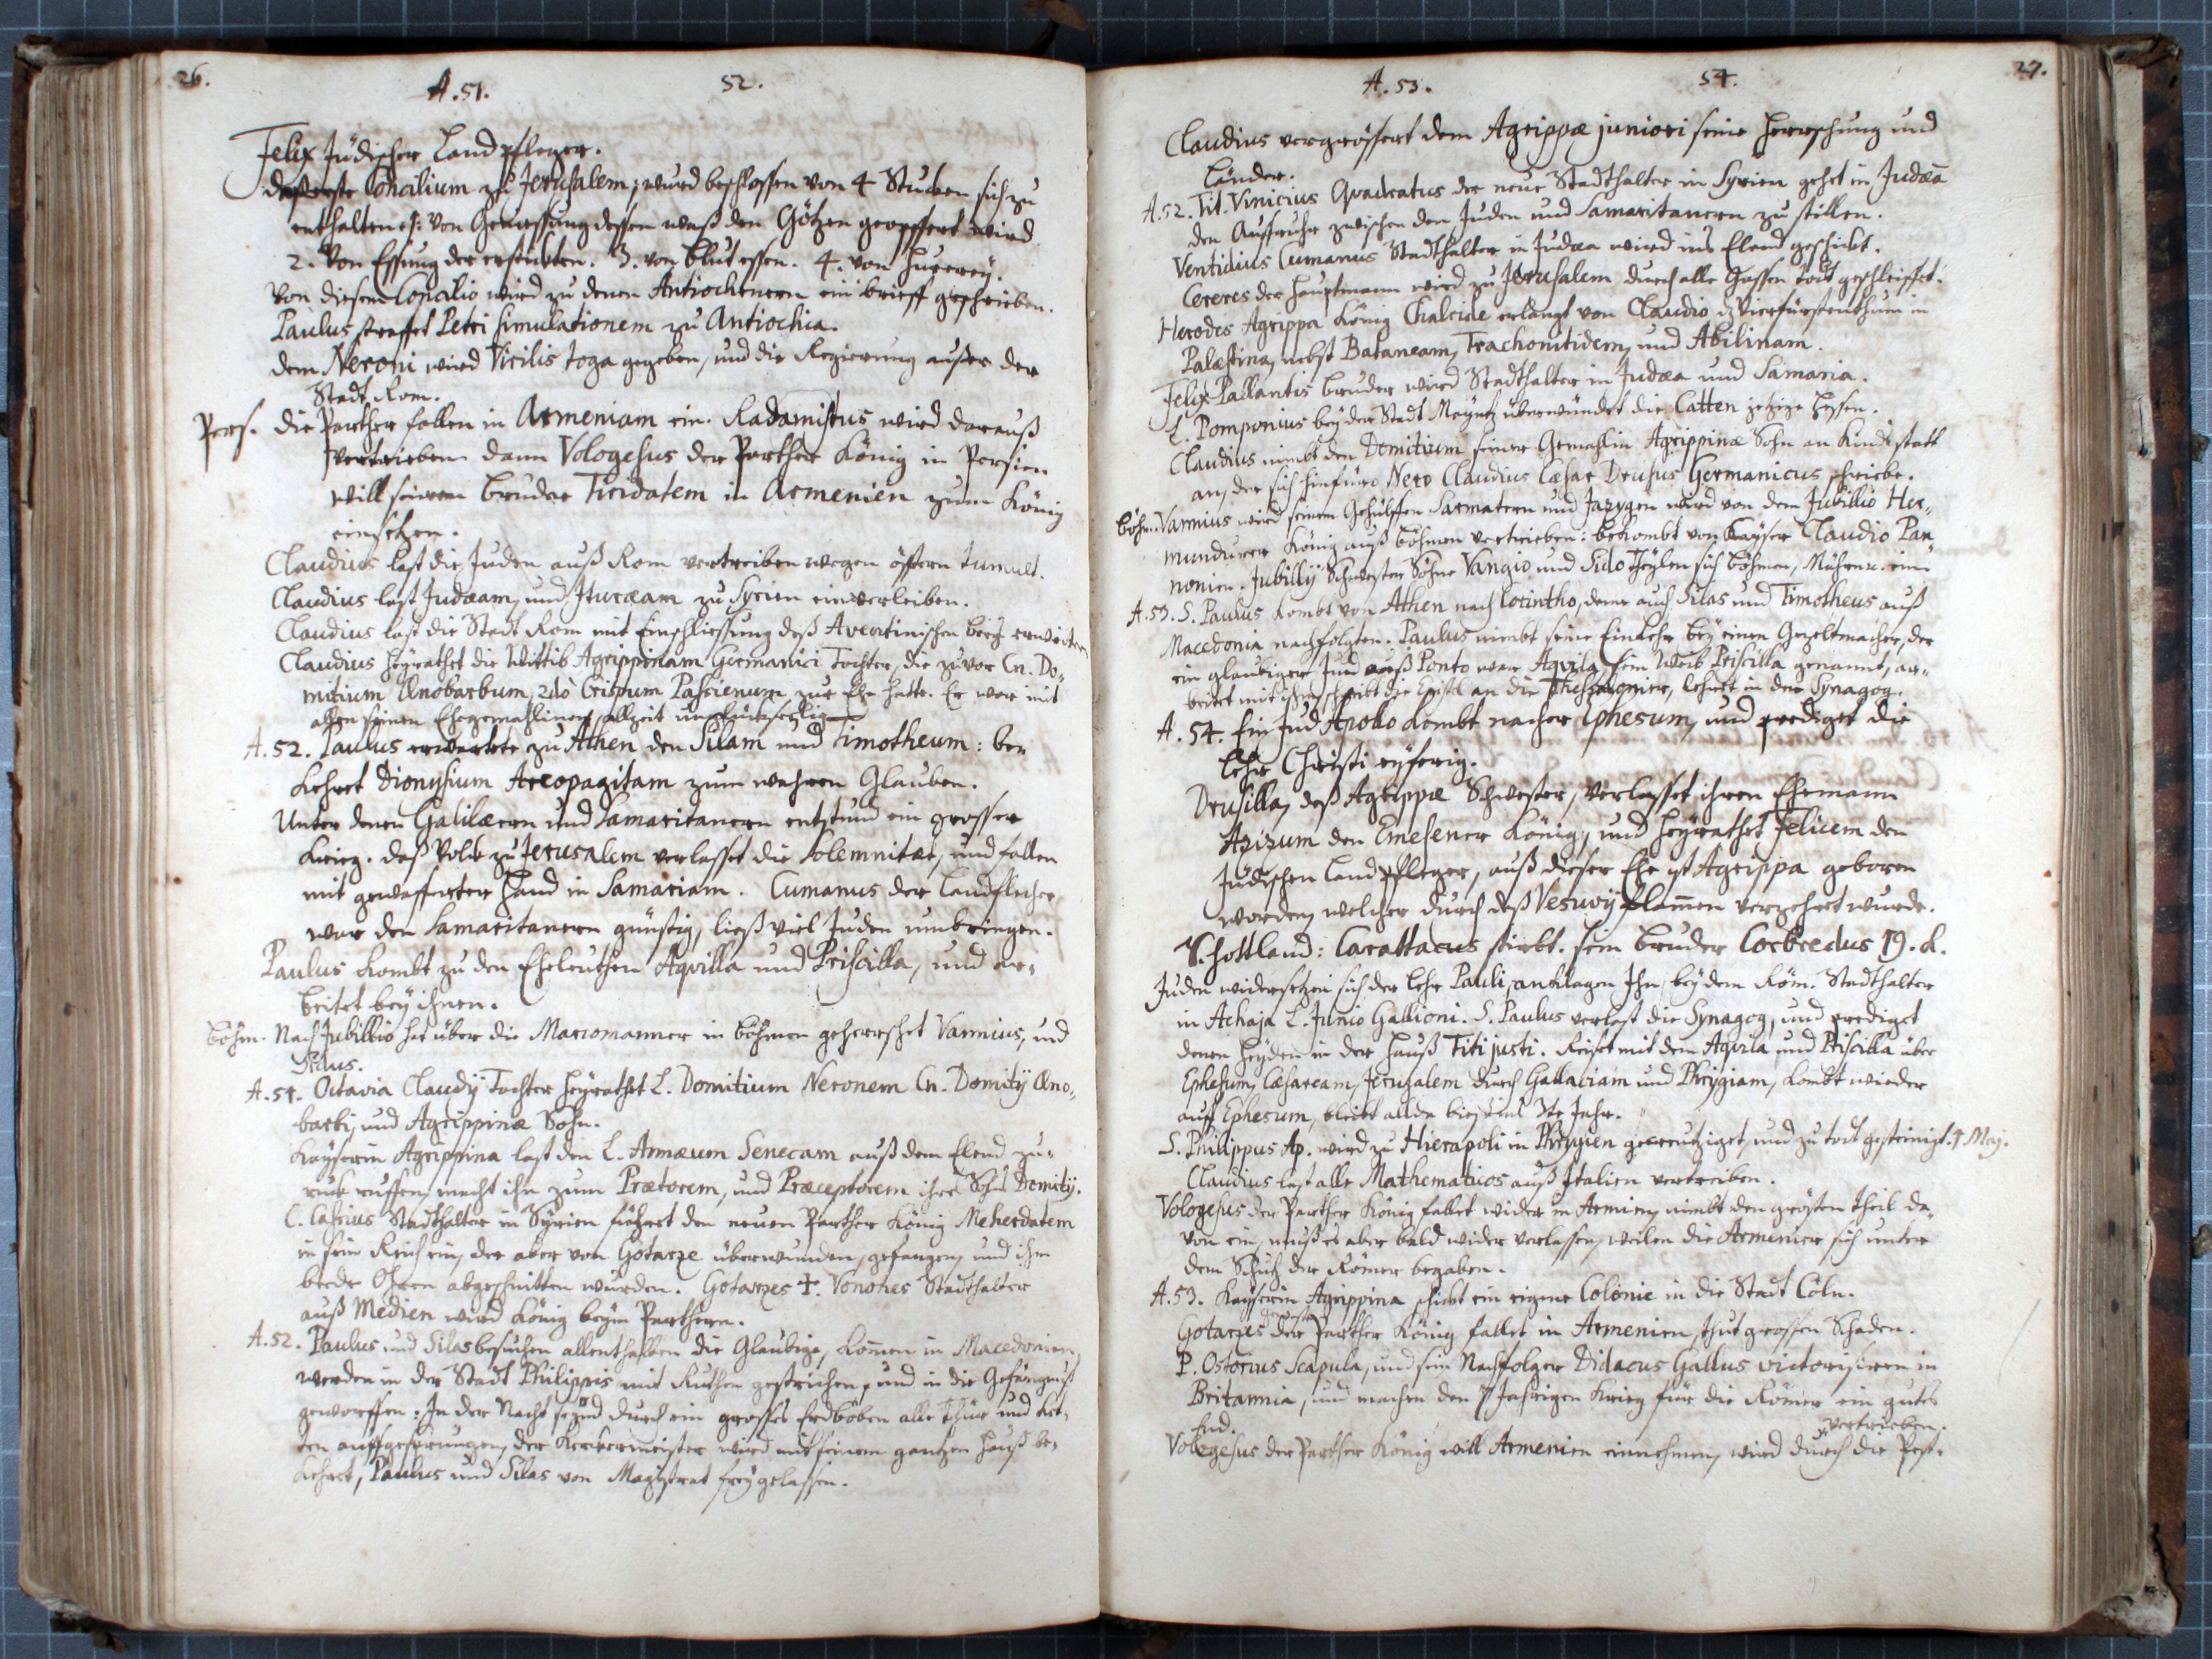 26.
A. 51. 52.
Felix Jüdischer Landpfleger.
daß erste Concilium zu Jerusalem, wurd beschlossen von 4 Stucken sich zu
enthalten. 1: von Geniessung dessen waß den Götzen geopffert wird
2. Von Essung der erstickten. 3. von blut essen. 4. von Hurrerey.
Von diesem Concilio wird zu denen Antiochenern ein brieff geschrieben.
Paulus straffet Petri simulationem zu Antiochia.
dem Neroni wird Virilis toga gegeben, und die Regierung ausser der
Stadt Rom.
Pers. die Parther fallen in Armeniam ein. Radamistus wird darauß
vertrieben dann Vologesus der Parther König in Persien
will seinem bruder Tiridatem in Armenien zum König
einsetzen.
Claudius last die Juden auß Rom vertreiben wegen öfftern tumult.
Claudius last Judæam, und Ituræam zu Syrien einverleiben.
Claudius last die Stadt Rom mit Einschliessung deß Aventinischen berg erweitern
Claudius Heyrathet die Wittib Agrippinam Germanici Tochter, die zuvor Cn. Do-
mitium Ænobarbum, 2dò Crispum Passienum zur Ehe hatte. Er war mit
allen seinen Ehegemahlinen allzeit unglückseelig
A. 52. Paulus erwartete zu Athen den Silam und Timotheum: be-
kehret Dionysium Areopagitam zum wahren Glauben.
Unter denen Galilæern und Samaritanern entstund ein grosser
krieg. daß Volck zu Jerusalem verlasset die Solemnitæt, und fallen
mit gewaffneter Hand in Samariam. Cumanus der Landpfleger
war den Samaritanern günstig, ließ viel Juden umbringen.
Paulus kombt zu den Eheleuthen Aqvilla und Priscilla, und ar-
beitet bey ihnen.
böhm. Nach Jubillio hat über die Marcomanner in böhmen geherrschet Vannius, und
Sidus.
A. 51. Octavia Claudij Tochter Heyrathet L. Domitium Neronem Cn. Domitij Æno-
barbi, und Agrippinæ Sohn.
Kayserin Agrippina last den L. Annæum Senecam auß dem Elend zu-
ruck ruffen, macht ihn zum Prætorem, und Præceptorem ihres Sohns Domitij.
C. Cassius Stadthalter in Syrien führet den neuen Parther König Meherdatem
in sein Reich ein, der aber von Gotarze überwunden, gefangen, und ihm
beede Ohren abgeschnitten wurden. Gotarzes †. Vonones Stadthalter
auß Medien wird König beym Parthern.
A. 52. Paulus und Silas besuchen allenthalben die Glaubige, kommen in Macedonien,
werden in der Stadt Philippis mit Ruthen gestrichen, und in die Gefängnuß
geworffen: In der Nacht seynd durch ein grosses Erdböben alle thür und ket-
ten auffgesprungen, der Kerkermeister wird mit seinem gantzen Hauß be-
kehret, Paulus und Silas von Magistrat frey gelassen.
27.
A. 53. 54.
Claudius vergrössert dem Agrippæ juniori seine Herrschung und
Länder.
A. 52. Tit. Vinicius Qvadratus der neue Stadthalter in Syrien gehet in Judæã
den Auffruhr zwischen den Juden und Samaritanern zu stillen.
Ventidius Cumanus Stadthalter in Judæa wird ins Elend geschickt.
Cereres der Hauptmann wird zu Jerusalem durch alle Gassen todt geschleiffet.
Herodes Agrippa König Chalcide erlangt von Claudio dz Vierfürstenthum in
Palæstina, nebst Bataneam, Trachonitidem, und Abilinam.
Felix Pallantis bruder wird Stadthalter in Judæa und Samaria.
L. Pomponius bey der Stadt Mayntz überwündet die Catten jetzige Hessen.
Claudius nimbt den Domitium seiner Gemahlin Agrippinæ Sohn an Kinds statt
an, der sich hinfüro Nero Claudius Cæsar Drusus Germanicus schriebe.
böhm. Vannius wird seinen Gehülffen Sarmatern und Jazygen wird von dem Jubillio Her-
mundurer König auß böhmen vertrieben: bekombt von Kayser Claudio Pan
nonien. Jubillij Schwester Söhne Vangio und Sido theylen sich böhmen, Mähren ein
A. 53. S. Paulus kombt von Athen nach Corintho, deme auch Silas und Timotheus auß
Macedonia nachfolgten. Paulus nimbt seine Einkehr bey einen Gezeltmacher, der
ein glaubiger Jud auß Ponto war Aqvila, sein Weib Priscilla genannt, ar-
beitet mit ihm, schreibt die Epistel an die Thessalonier, lehret in der Synagog.
A. 54. Ein Jud Apollo kombt nacher Ephesum, und prediget die
Lehr Christi eyferig.
Drusilla, deß Agrippæ Schwester, verlasset ihren Ehemann
Azizum den Emesener König, und Heyrathet Felicem den
Jüdischen Landpfleger, auß dieser Ehe ist Agrippa geboren
worden, welcher durch deß Vesuvij flammen verzehret wurde.
Schottland: Carattacus stirbt. sein bruder Corbredus 19. K.
Juden widersetzen sich der Lehr Pauli, anklagen Ihn, bey dem Röm. Stadthalter
in Achaja L. Junio Gallioni. S. Paulus verlast die Synagog, und prediget
denen Heyden in der Hauß Titi justi. Reiset mit dem Aqvila und Priscilla über
Ephesum, Cæsaream, Jerusalem durch Gallatiam und Phrygiam, kombt wieder
auff Ephesum, bleibt allda biß ins 3te Jahr.
S. Philippus Ap. wird zu Hierapoli in Phrygien gecreutziget, und zu todt gesteinigt. 1 Maij.
Claudius last alle Mathematicos auß Italien vertreiben.
Vologesus der Parther König fallet wider in Armenien, nimbt den grösten theil da-
von ein, muß es aber bald wider verlassen, weilen die Armenier sich unter
dem Schutz der Römer begaben.
A. 53. Kayserin Agrippina schickt ein eigene Colonie in die Stadt Cöln.
Gotarzes der Parther König fallet in Armenien, thut grossen Schaden.
P. Ostorius Scapula, und sein Nachfolger Didacus Gallus victorisiren in
Britannia, und machen den 7 Jahrigen Krieg für die Römer ein gutes
End.
vertrieben.
Vologesus der Parther König will Armenien einnehmen, wird durch die Pest